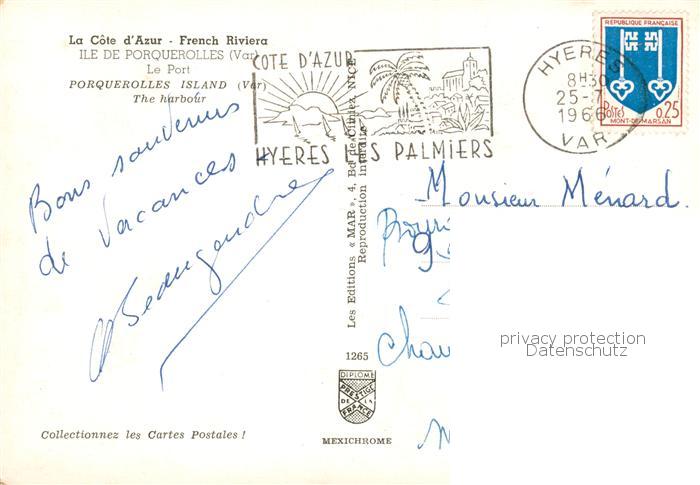 La Côte d'Azur - French Riviera
ILE DE PORQUEROLLES (Var)
Le Port
PORQUEROLLES ISLAND (Var)
The harbour
COTE D'AZUR
HYERES LES PALMIERS
HYERES
8H30
25-7
1966
VAR
REPUBLIQUE FRANÇAISE
POSTES 0,25
MONT-DE-MARSAN
Bons souvenirs
de vacances
Monsieur Ménard.
Les Editions « MAR », 4, Bd de Cimiez, NICE
Reproduction interdite
privacy protection
Datenschutz
1265
DIPLOME
PRESTIGE
DE LA
FRANCE
Collectionnez les Cartes Postales !
MEXICHROME